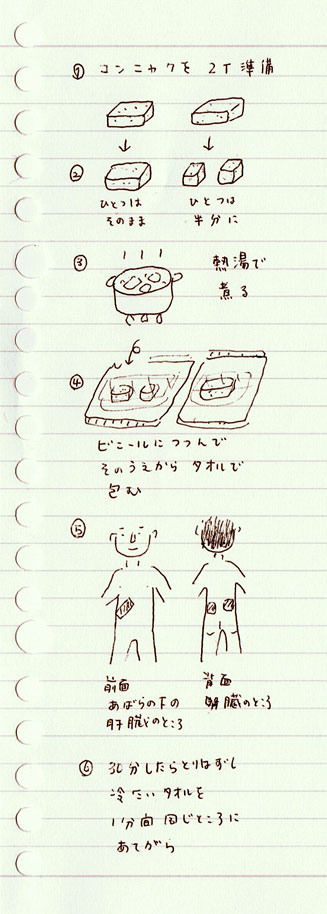 ① コンニャクを 2丁 準備
②
ひとつは
そのまま
ひとつは
半分に
③ 熱湯で
煮る
④
ビニールにつつんで
そのうえから タオルで
包む
⑤
前面
あばらの下の
肝臓のところ
背面
腎臓のところ
⑥ 30分したらとりはずし
冷たいタオルを
1分間 同じところに
あてがら